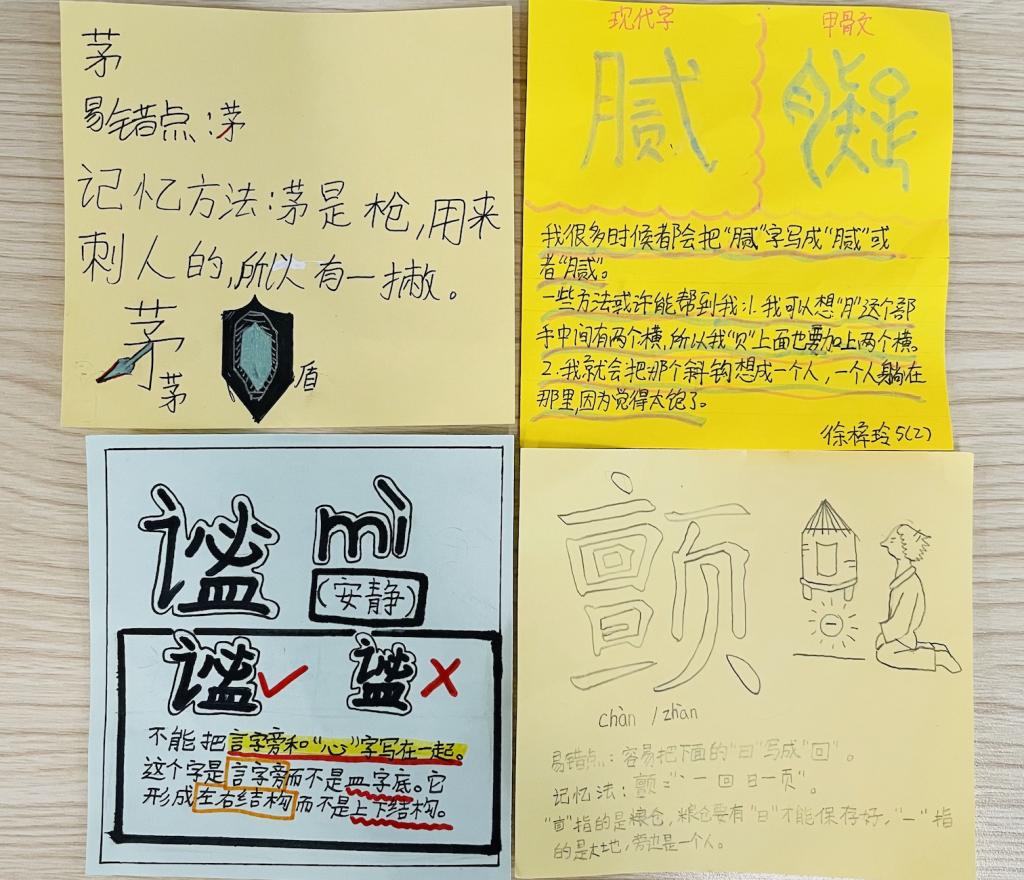 茅
易错点：茅
记忆方法：茅是枪，用来
刺人的，所以有一撇。
茅
茅
盾
现代字
甲骨文
腻
我很多时候都会把“腻”字写成“腻”或
者“腻”。
一些方法或许能帮到我：1.我可以想“月”这个部
手中间有两个横，所以我“贝”上面也要加上两个横。
2.我就会把那个斜钩想成一个人，一个人躺在
那里，因为觉得太饱了。
徐梓玲5(2)
谧 mì
(安静)
谧 谧
不能把言字旁和“心”字写在一起。
这个字是言字旁而不是皿字底。它
形成左右结构而不是上下结构。
颤
chàn / zhàn
易错点：容易把下面的“日”写成“回”。
记忆法：颤=“丶一回日一页”。
“亶”指的是粮仓，粮仓要有“日”才能保存好，“一”指
的是大地，旁边是一个人。